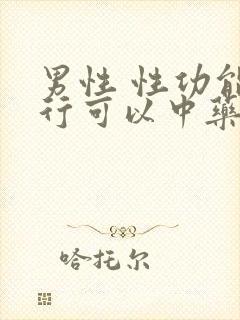 男性 性功能
行可以中药
哈托尔